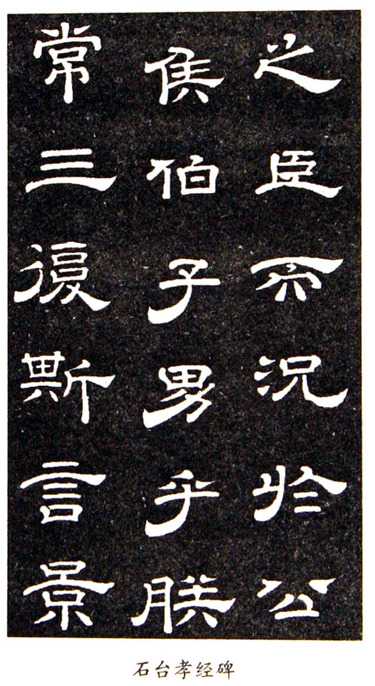 之臣而況於公
侯伯子男乎朕
常三復斯言景
石台孝经碑